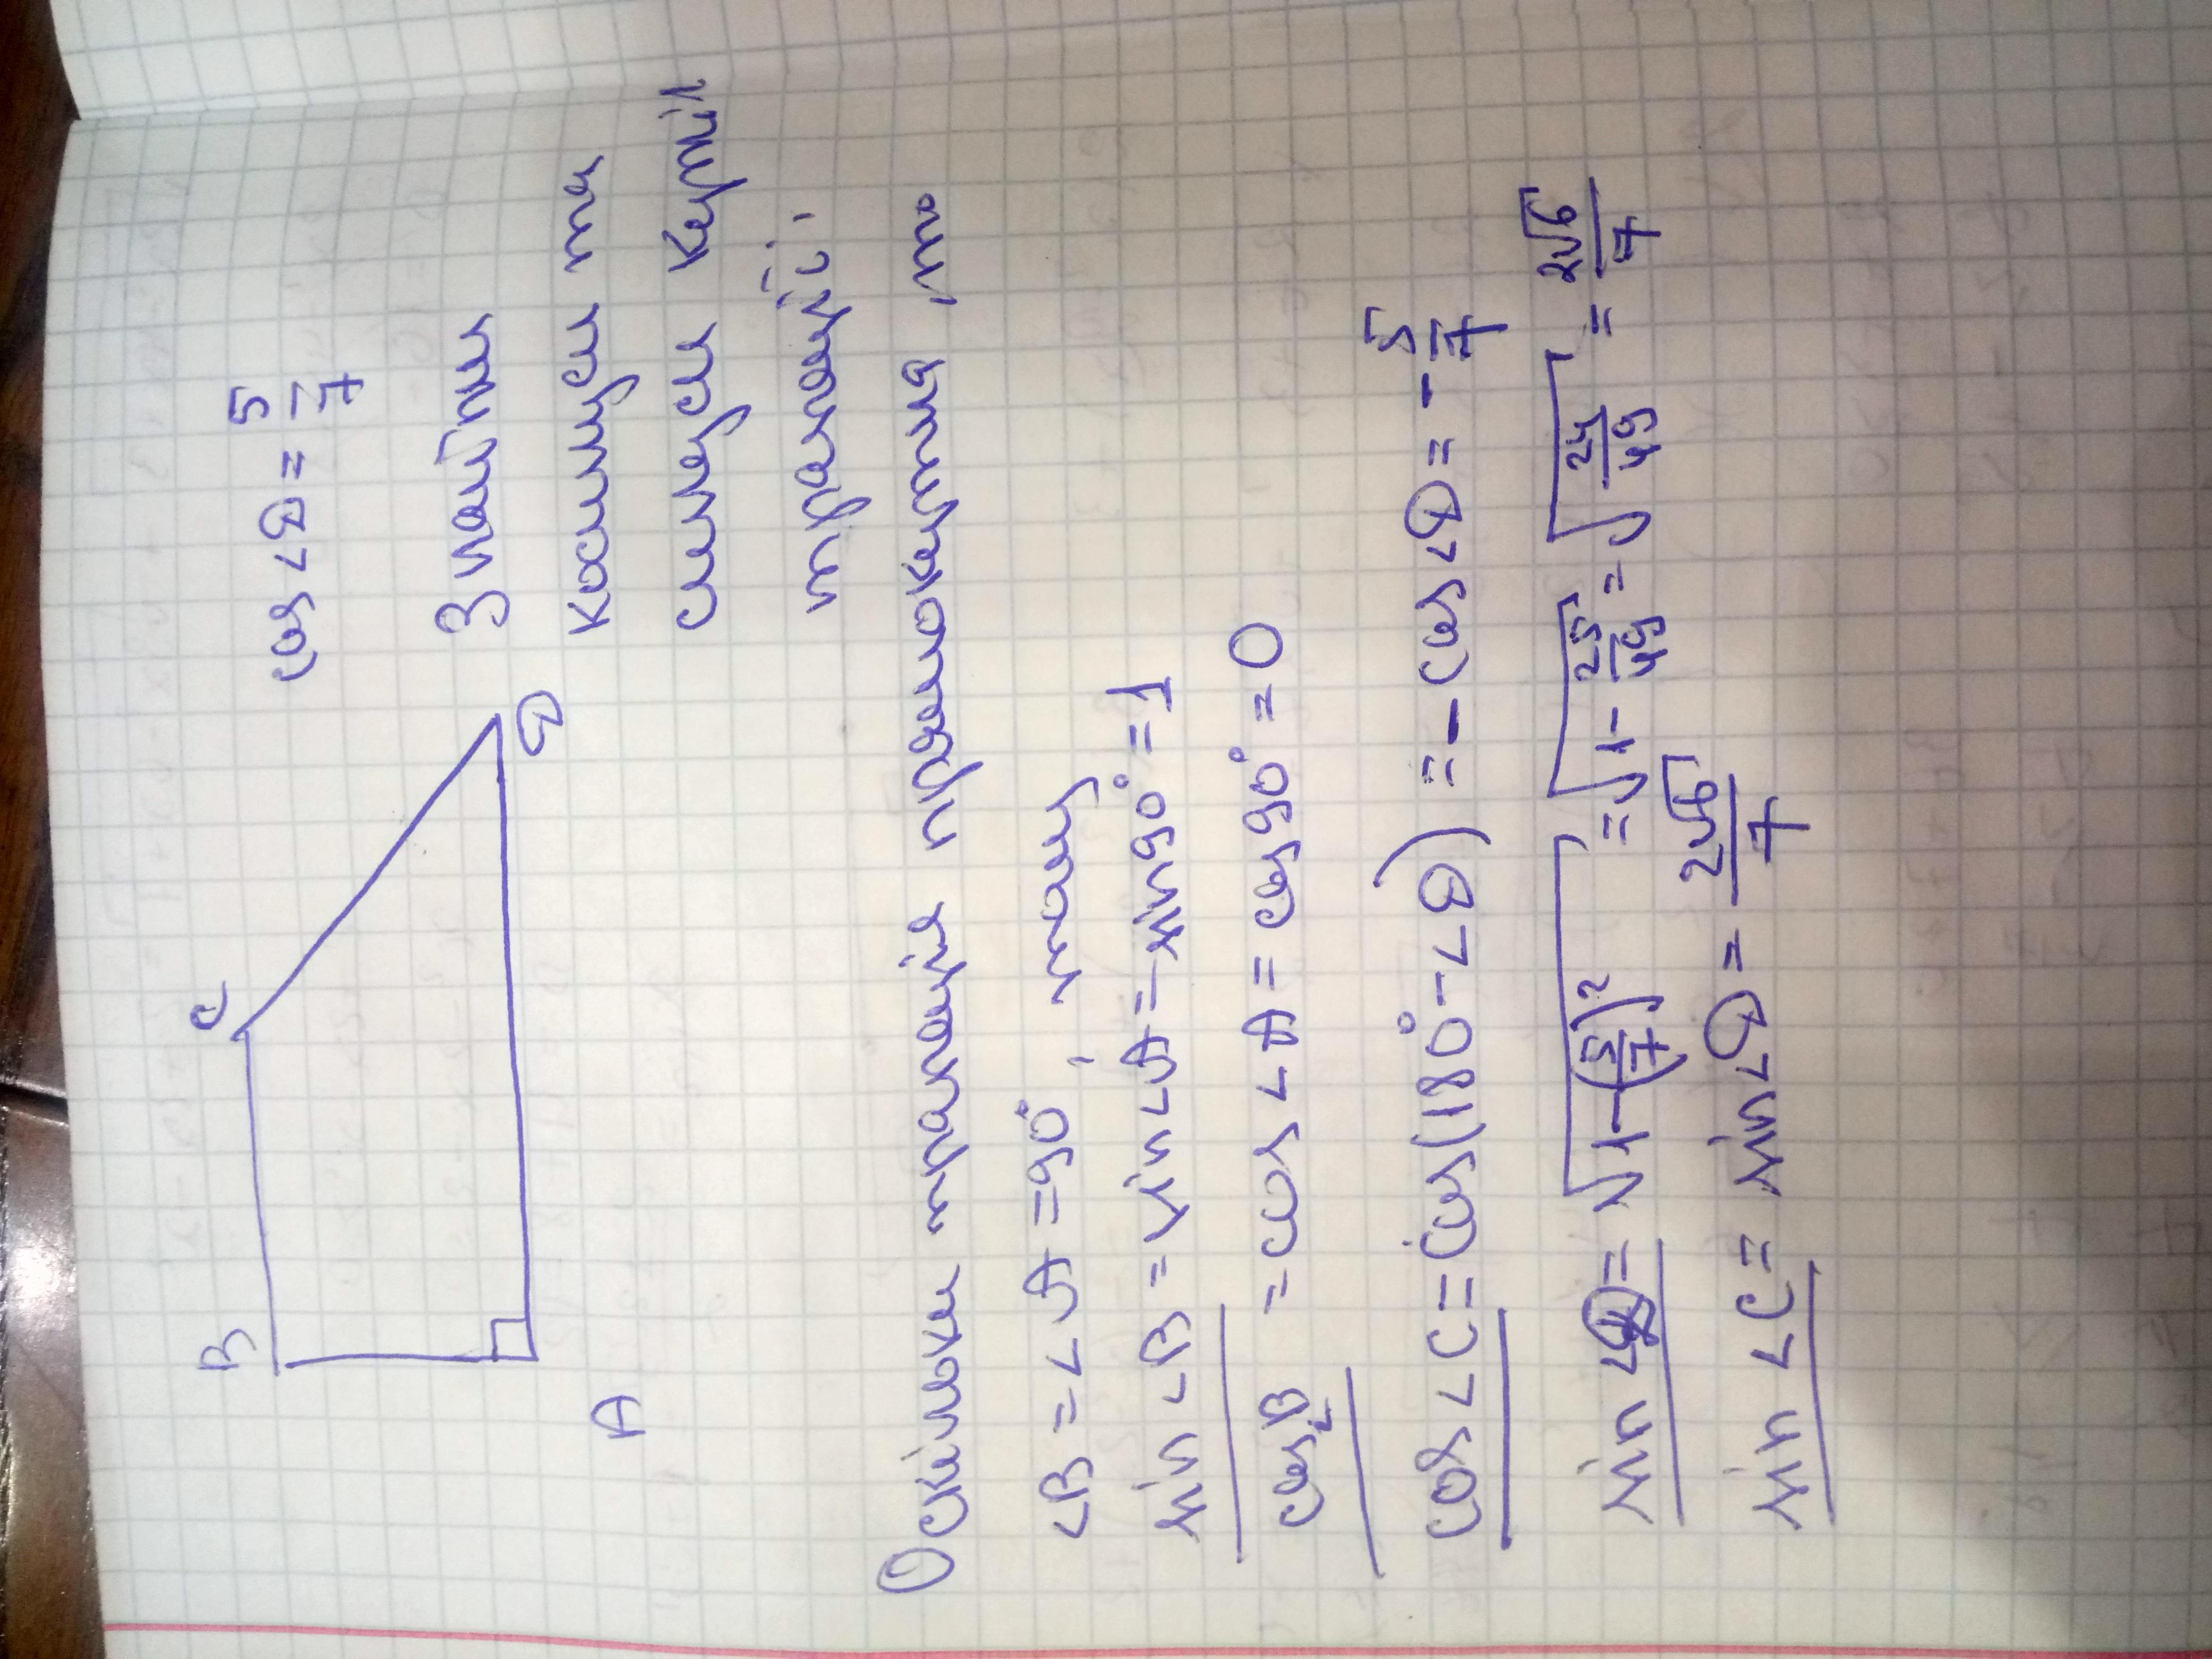 B C
A D
cos ∠D = 5/7
Знайти
косинуси та
синуси кутів
трапеції.
Оскільки трапеція прямокутна, то
∠B = ∠A = 90°, тому
sin ∠B = sin ∠A = sin 90° = 1
cos ∠B = cos ∠A = cos 90° = 0
cos ∠C = cos(180° - ∠D) = - cos ∠D = - 5/7
sin ∠D = √(1-(5/7)²) = √(1 - 25/49) = √(24/49) = 2√6/7
sin ∠C = sin ∠D = 2√6/7